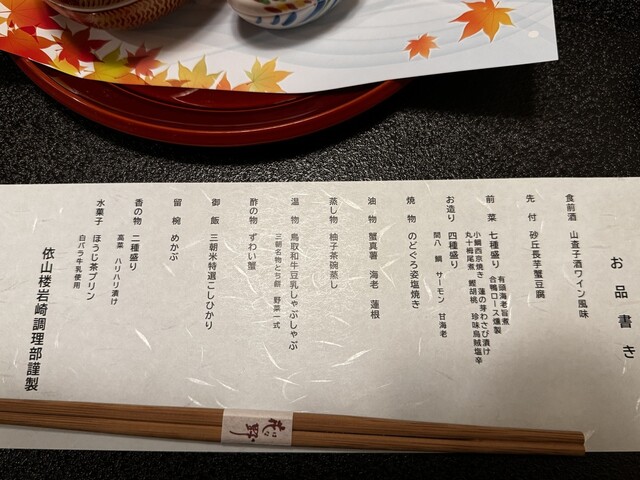 お品書き
食前酒 山査子酒ワイン風味
先付 砂丘長芋蟹豆腐
前菜 七種盛り 有頭海老旨煮
合鴨ロース燻製
小鯛西京焼き 蓮の芽わさび漬け
丸十梅尾煮 鰹胡桃 珍味烏賊塩辛
お造り 四種盛り
間八 鯛 サーモン 甘海老
焼物 のどぐろ姿塩焼き
油物 蟹真薯 海老 蓮根
蒸し物 柚子茶碗蒸し
温物 鳥取和牛豆乳しゃぶしゃぶ
三朝名物とち餅 野菜一式
酢の物 ずわい蟹
御飯 三朝米特選こしひかり
留椀 めかぶ
香の物 二種盛り
高菜 ハリハリ漬け
水菓子 ほうじ茶プリン
白バラ牛乳使用
依山楼岩崎調理部謹製